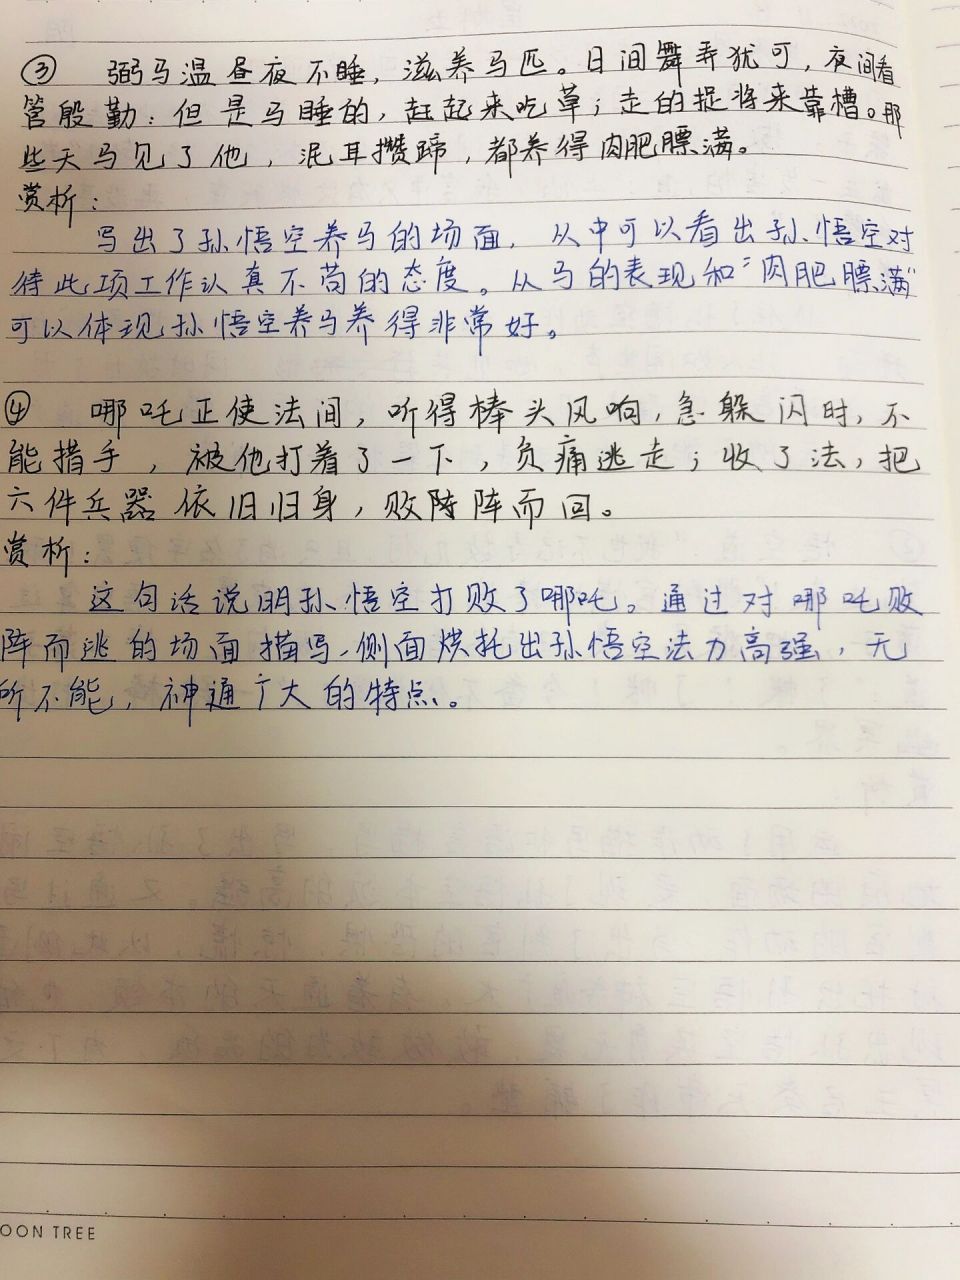 ③ 弼马温昼夜不睡，滋养马匹。日间舞弄犹可，夜间看
管殷勤：但是马睡的，赶起来吃草；走的捉将来靠槽。那
些天马见了他，泯耳攒蹄，都养得肉肥膘满。
赏析：
写出了孙悟空养马的场面，从中可以看出孙悟空对
待此项工作认真不苟的态度。从马的表现和“肉肥膘满”
可以体现孙悟空养马养得非常好。
④ 哪吒正使法间，听得棒头风响，急躲闪时，不
能措手，被他打着了一下，负痛逃走；收了法，把
六件兵器依旧归身，败阵阵而回。
赏析：
这句话说明孙悟空打败了哪吒。通过对哪吒败
阵而逃的场面描写，侧面烘托出孙悟空法力高强，无
所不能，神通广大的特点。
OON TREE